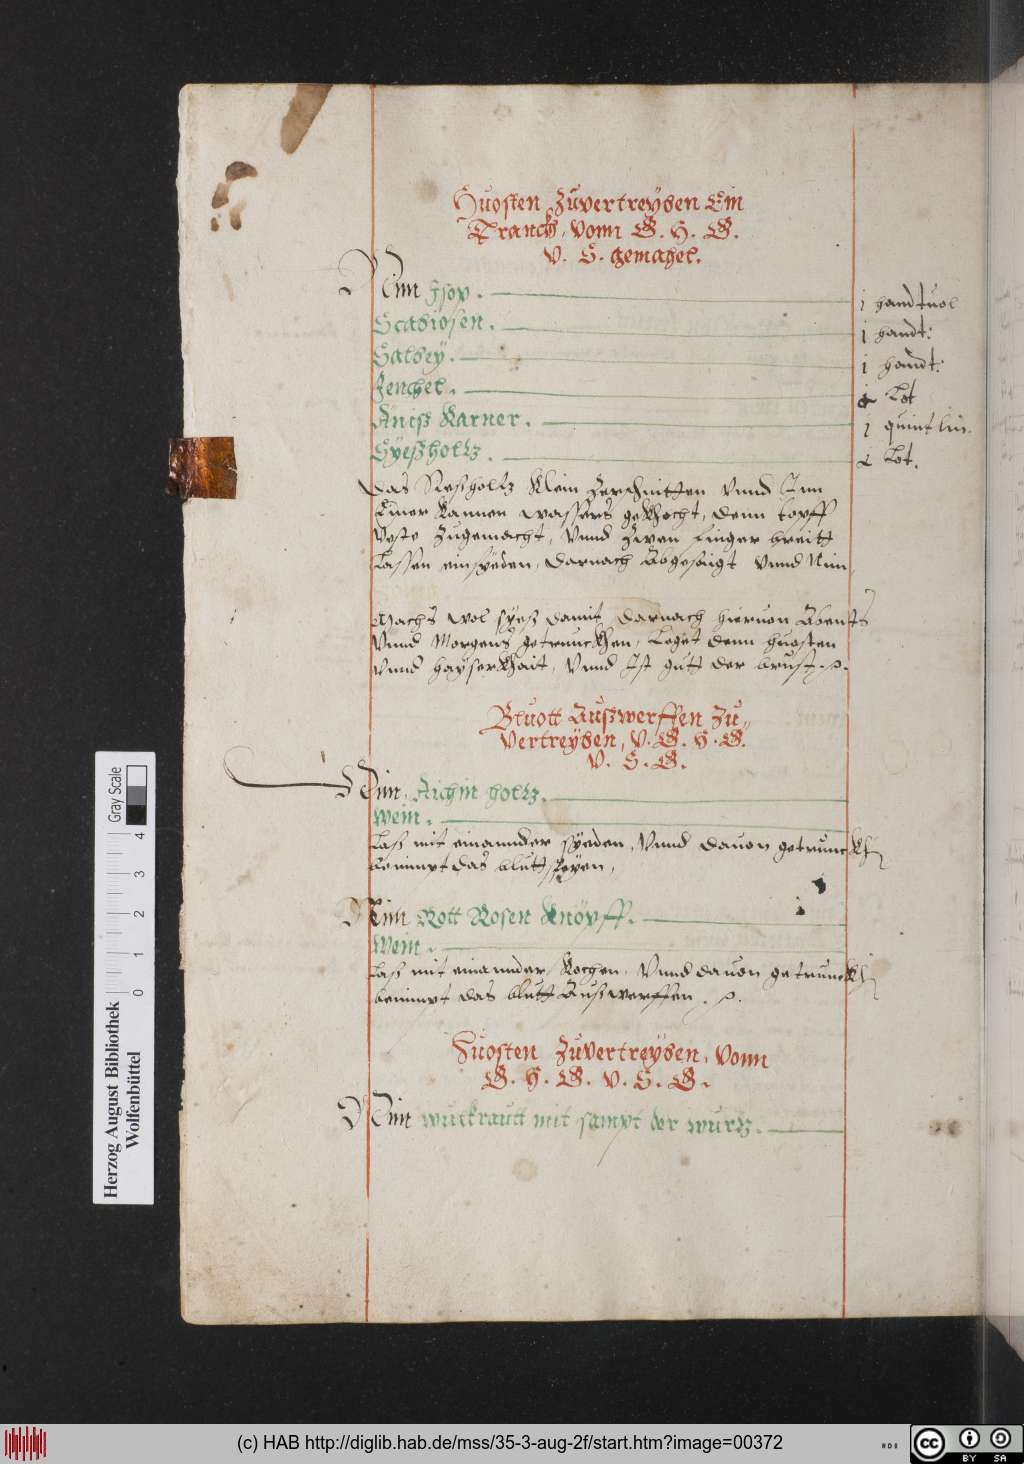 Huosten Zuvertreyben Ein
Tranckh, vonn G. H. G.
V. S. gemahel.
Nim Isop. j handtuol
Scabiosen. j handt:
Salbey. j handt:
Fenchel. Lot
Aniß Karner. j quintlin.
Syeßholtz. Lot.
Das Siesholtz Klein Zerschnitten Vnnd Inn
Einer Kannen wassers gekhocht, denn topff
Veste Zugemacht, Vnnd Zwen finger breitt
Lassen einsyeden, darnach Abgesaigt Vnnd Nim
Machs wol syeß damit, darnach hieruon Abents
Vnnd Morgens getrunckhen, Leget denn huosten
Vnnd hayserkhait, Vnnd Ist gutt der brust.
Bluott Außwerffen Zu„
vertreyben, V. G. H. G.
V. S. G.
Nim Aichin holtz.
Wein.
Laß mit einannder syeden, Vnnd dauon getrunckh
benimpt das blutt speyen,
Nim Rott Rosen Knöpff.
Wein.
Laß mit einannder Kochen, Vnnd dauon getrunckh
benimpt das blutt Außwerffen.
Huosten Zuvertreyben, Vonn
G. H. G. V. S. G.
Nim wulkrautt mit sampt der wurtz.
Herzog August Bibliothek
Wolfenbüttel
Gray Scale
0 1 2 3 4
(c) HAB http://diglib.hab.de/mss/35-3-aug-2f/start.htm?image=00372
cc BY SA